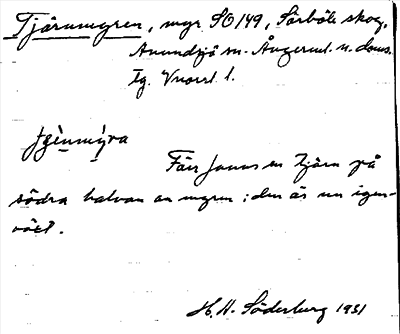 Tjärnmyren, myr SO/49, Sörböle skog,
Anundsjö sn. Ångerml. n. doms.
tg. Vnorrl l.
Fanns en tjärn på
södra halvan av myren; den är nu igen-
växt.
H. H. Söderberg 1931